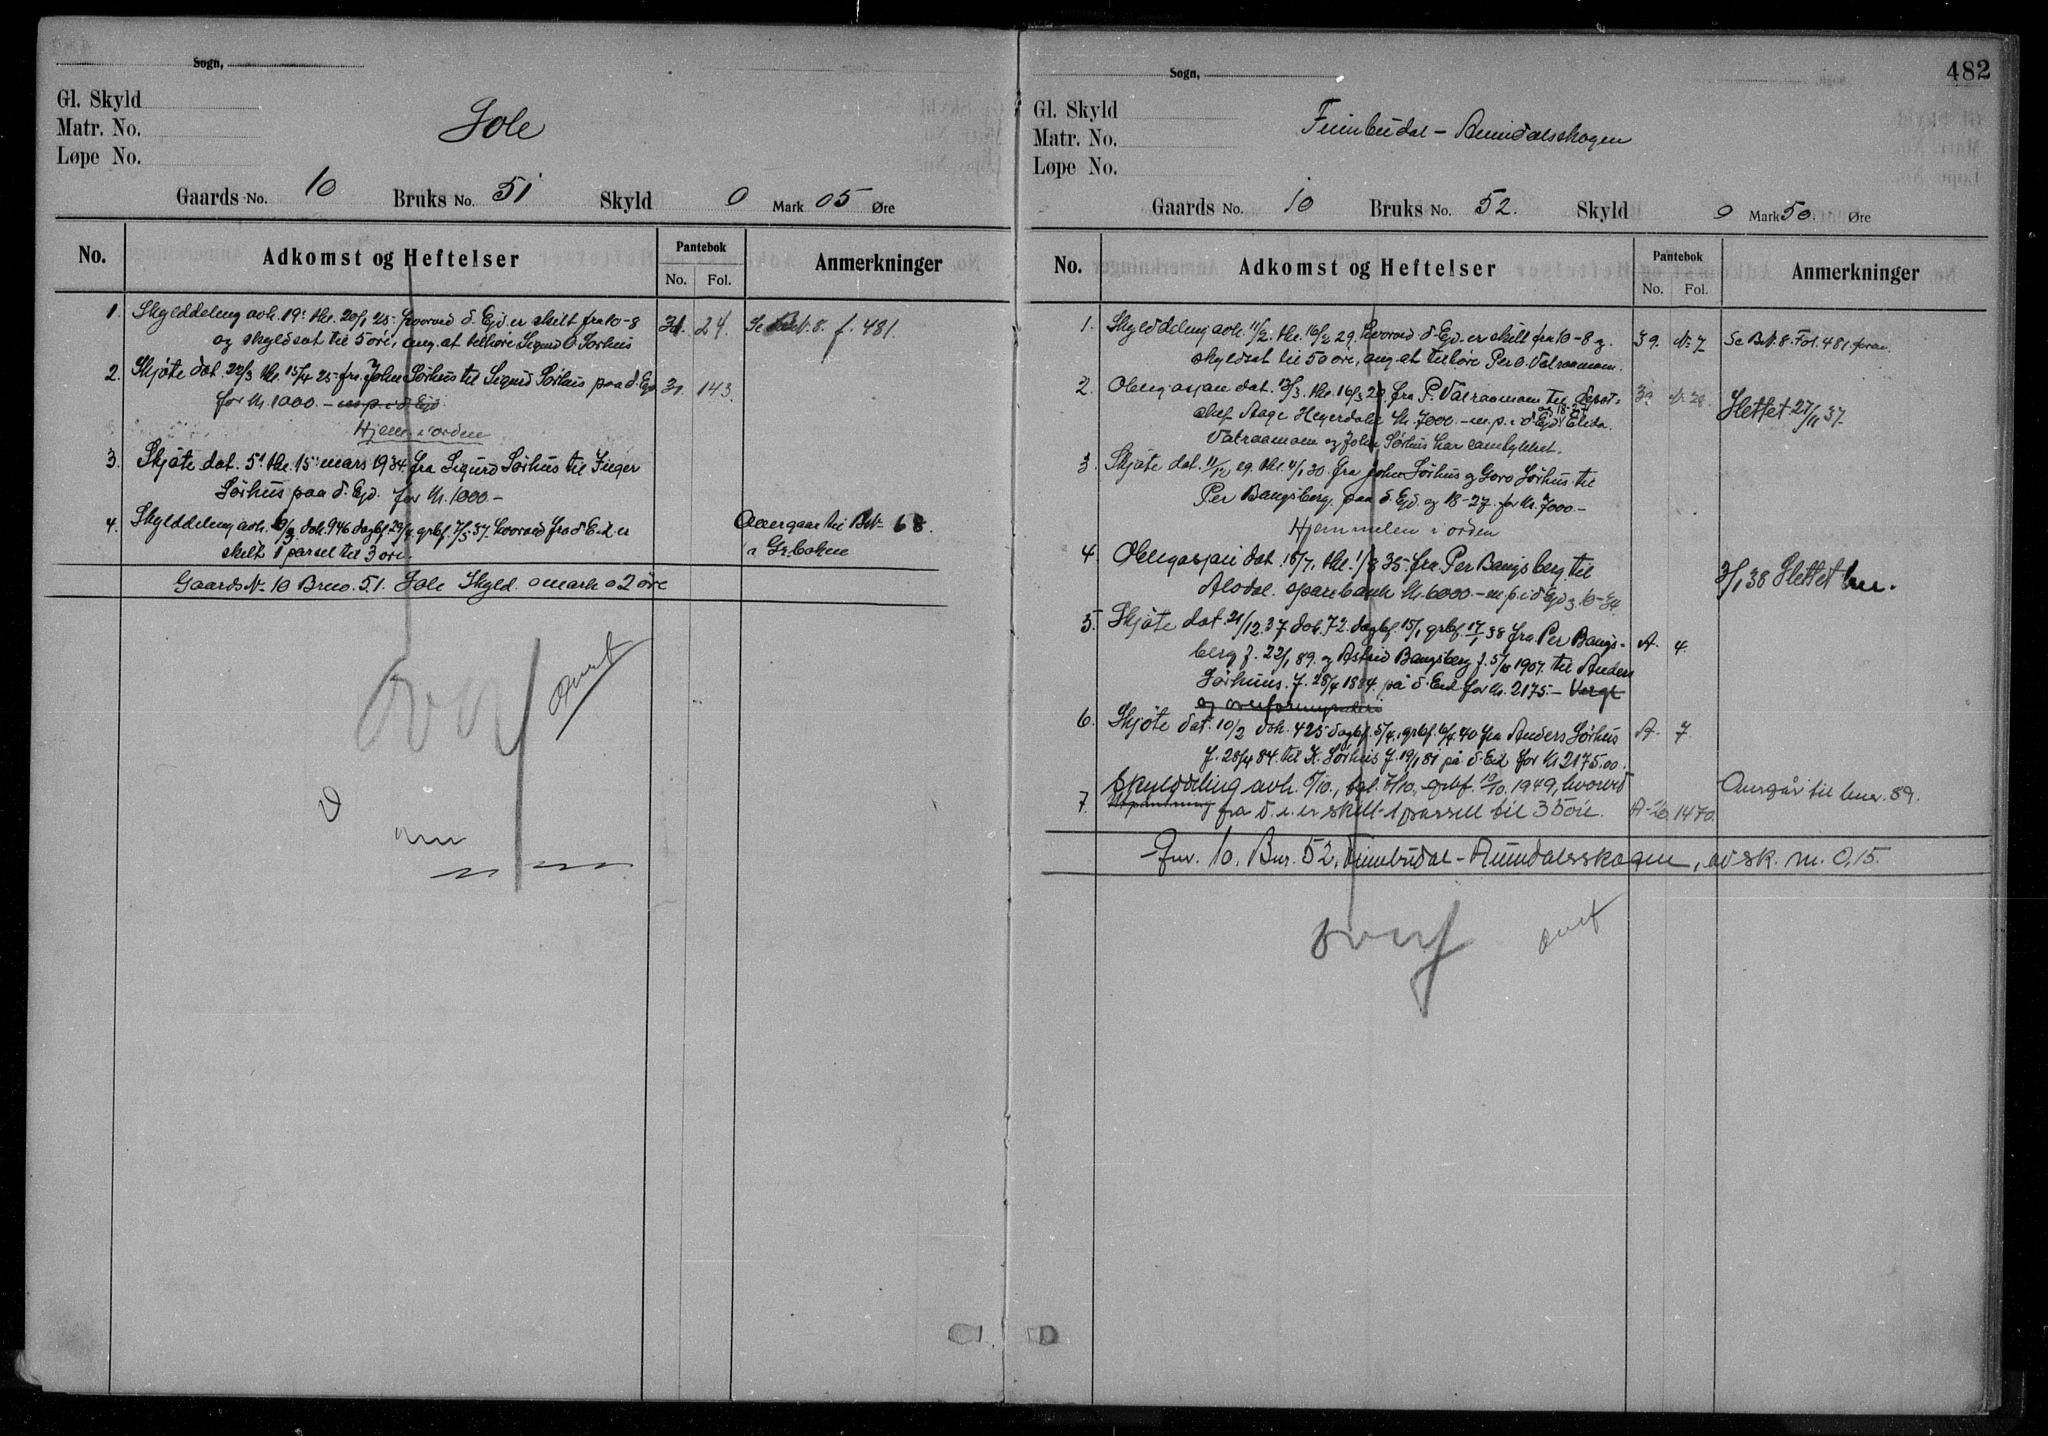 Sogn,
Gl. Skyld
Matr. No.
Løpe No.
Sole
Gaards No. 10 Bruks No. 51 Skyld 0 Mark 05 Øre
No. Adkomst og Heftelser Pantebok No. Fol. Anmerkninger
1. Skylddeling avh. 19: thl. 20/1 25. hvorved d. Ejd. er skilt fra 10-8 31. 24. Se B.N. 8. f. 481.
og skyldsat til 5 öre, ang. at tilhöre Sigurd O Sörhus
2. Skjöte dat. 22/3 thl. 15/4 25 fra John Sörhus til Sigurd Sörhus paa d. Ejd 31. 143.
for Kr. 1000. - m.p.i d Ejd
Hjem. i orden
3. Skjöte dat. 5' thl. 15' mars 1934 fra Sigurd Sörhus til Inger
Sörhus paa d. Ejd. for Kr. 1000 -
4. Skylddeling avh. 9/3 dok. 946 dagbf. 29/4 grbf. 7/5 37. hvorved fra d E.d. er Avergaar til BN 68.
skilt 1 parsel til 3 öre. i Gr.boken
Gaards N. 10 Brno. 51. Sole Skyld. 0 mark 02 öre
overf
overf
482
Sogn,
Gl. Skyld
Matr. No.
Løpe No.
Fimbudal - Aumdalsskogen
Gaards No. 10 Bruks No. 52. Skyld 0 Mark 50. Øre
No. Adkomst og Heftelser Pantebok No. Fol. Anmerkninger
1. Skylddeling avh. 11/2. thl. 16/2 29. hvorved d. Ejd. er skilt fra 10-8 og 39. Nr 7 Se B.N. 8. Fol. 481 foran
skyldsat til 50 öre, ang. at tilhöre Per O. Vatraamom.
2. Obligasjon dat. 13/3. thl. 16/3 29 fra P. Vatraamom til depot- 39. Nr 20 Slettet 27/11 37.
chef Aage Heyerdahl Kr. 7000. - m.p.i d Ejd. og 18-27 Elida
Vatraamom og John Sörhus har samtykket.
3. Skjöte dat. 11/12 29. thl. 4/1 30. fra John Sörhus og Goro Sörhus til
Per Bangsberg. paa d Ejd. og 18-27. for Kr. 7000 -
Hjemmelen i orden
4. Obligasjon dat. 18/7. thl. 1/8 35. fra Per Bangsberg til
Alvdal. sparebank Kr. 6000. - m.p.i d Ejd og 10-34 3/1 38 Slettet
5. Skjöte dat. 21/12. 37 dok. 72. dagbf. 15/1 grbf. 17/1 38 fra Per Bangs- A. 4.
berg f. 22/1 89. og Astrid Bangsberg f. 5/10 1907. til Anders
Sörhuus. f. 28/4 1884. på d. Eed. for Kr. 2175. - Vergl
og
6. Skjöte dat. 10/2 dok. 425 dagbf. 5/4. grbf. 6/4. 40 fra Anders Sörhus A. 7.
f. 28/4 84. til K. Sörhus f. 19/1 81 på d. Eed for Kr 2175.00.
7. Skylddeling avh. 6/10., tgl. 7/10., grbf. 19/10. 1949, hvorved Overgår til bnr. 89.
Utpantning fra d. e. er skilt 1 parsell til 35 öre. A-26 1470.
Gnr. 10. Bnr. 52, Fimbudal - Aumdalsskogen, av sk. m. 0,15.
overf
overf